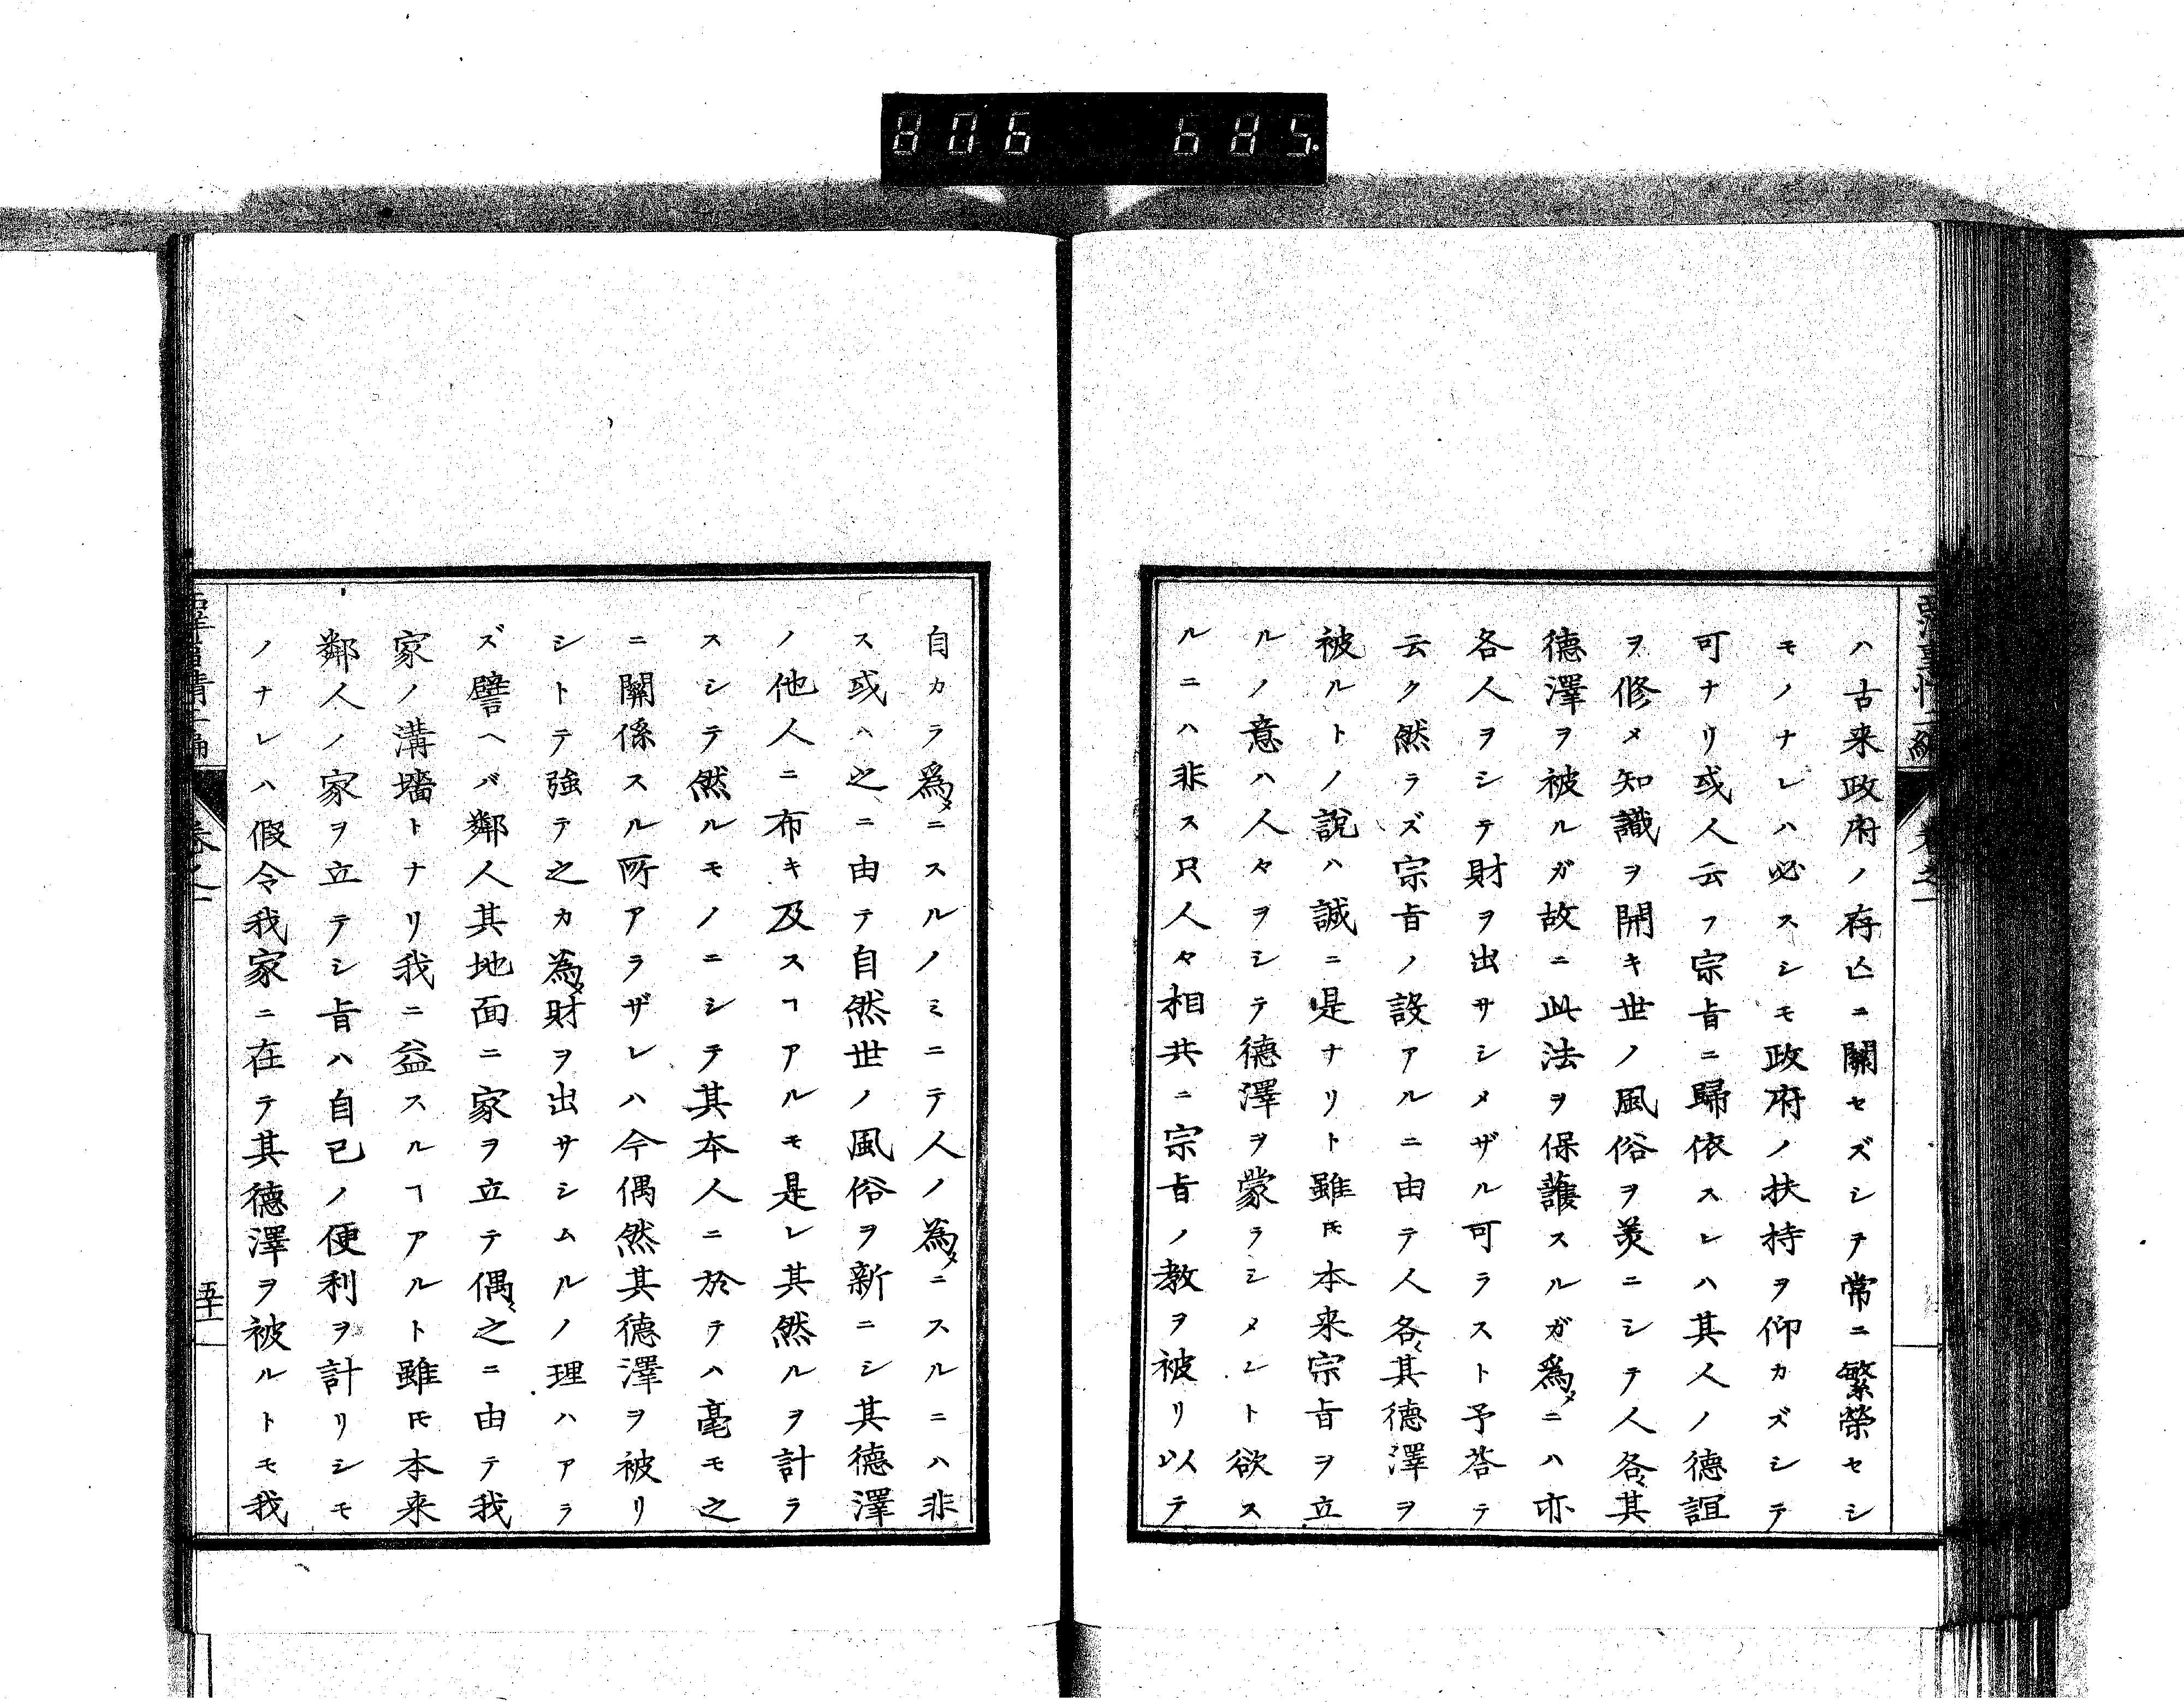 806 685.
ハ古来政府ノ存亾ニ關セズシテ常ニ繁榮セシ
モノナレハ必スシモ政府ノ扶持ヲ仰カズシテ
可ナリ或人云フ宗旨ニ歸依スレハ其人ノ德誼
ヲ修メ知識ヲ開キ世ノ風俗ヲ美ニシテ人各〻其
德澤ヲ被ルガ故ニ此法ヲ保護スルガ爲メニハ亦
各人ヲシテ財ヲ出サシメザル可ラスト予荅テ
云ク然ラズ宗旨ノ設アルニ由テ人各〻其德澤ヲ
被ルトノ說ハ誠ニ是ナリト雖𪜈本来宗旨ヲ立
ルノ意ハ人々ヲシテ德澤ヲ蒙ラシメント欲ス
ルニハ非ス只人々相共ニ宗旨ノ教ヲ被リ以テ
自カラ爲メニスルノミニテ人ノ爲メニスルニハ非
ス或ハ之ニ由テ自然世ノ風俗ヲ新ニシ其德澤
ノ他人ニ布キ及スヿアルモ是レ其然ルヲ計ラ
スシテ然ルモノニシテ其本人ニ於テハ毫モ之
ニ關係スル所アラザレハ今偶然其德澤ヲ被リ
シトテ強テ之カ為メ財ヲ出サシムルノ理ハアラ
ズ譬ヘバ鄰人其地面ニ家ヲ立テ偶〻之ニ由テ我
家ノ溝墻トナリ我ニ益スルヿアルト雖𪜈本来
鄰人ノ家ヲ立テシ旨ハ自己ノ便利ヲ計リシモ
ノナレハ假令我家ニ在テ其德澤ヲ被ルトモ我
卷之一